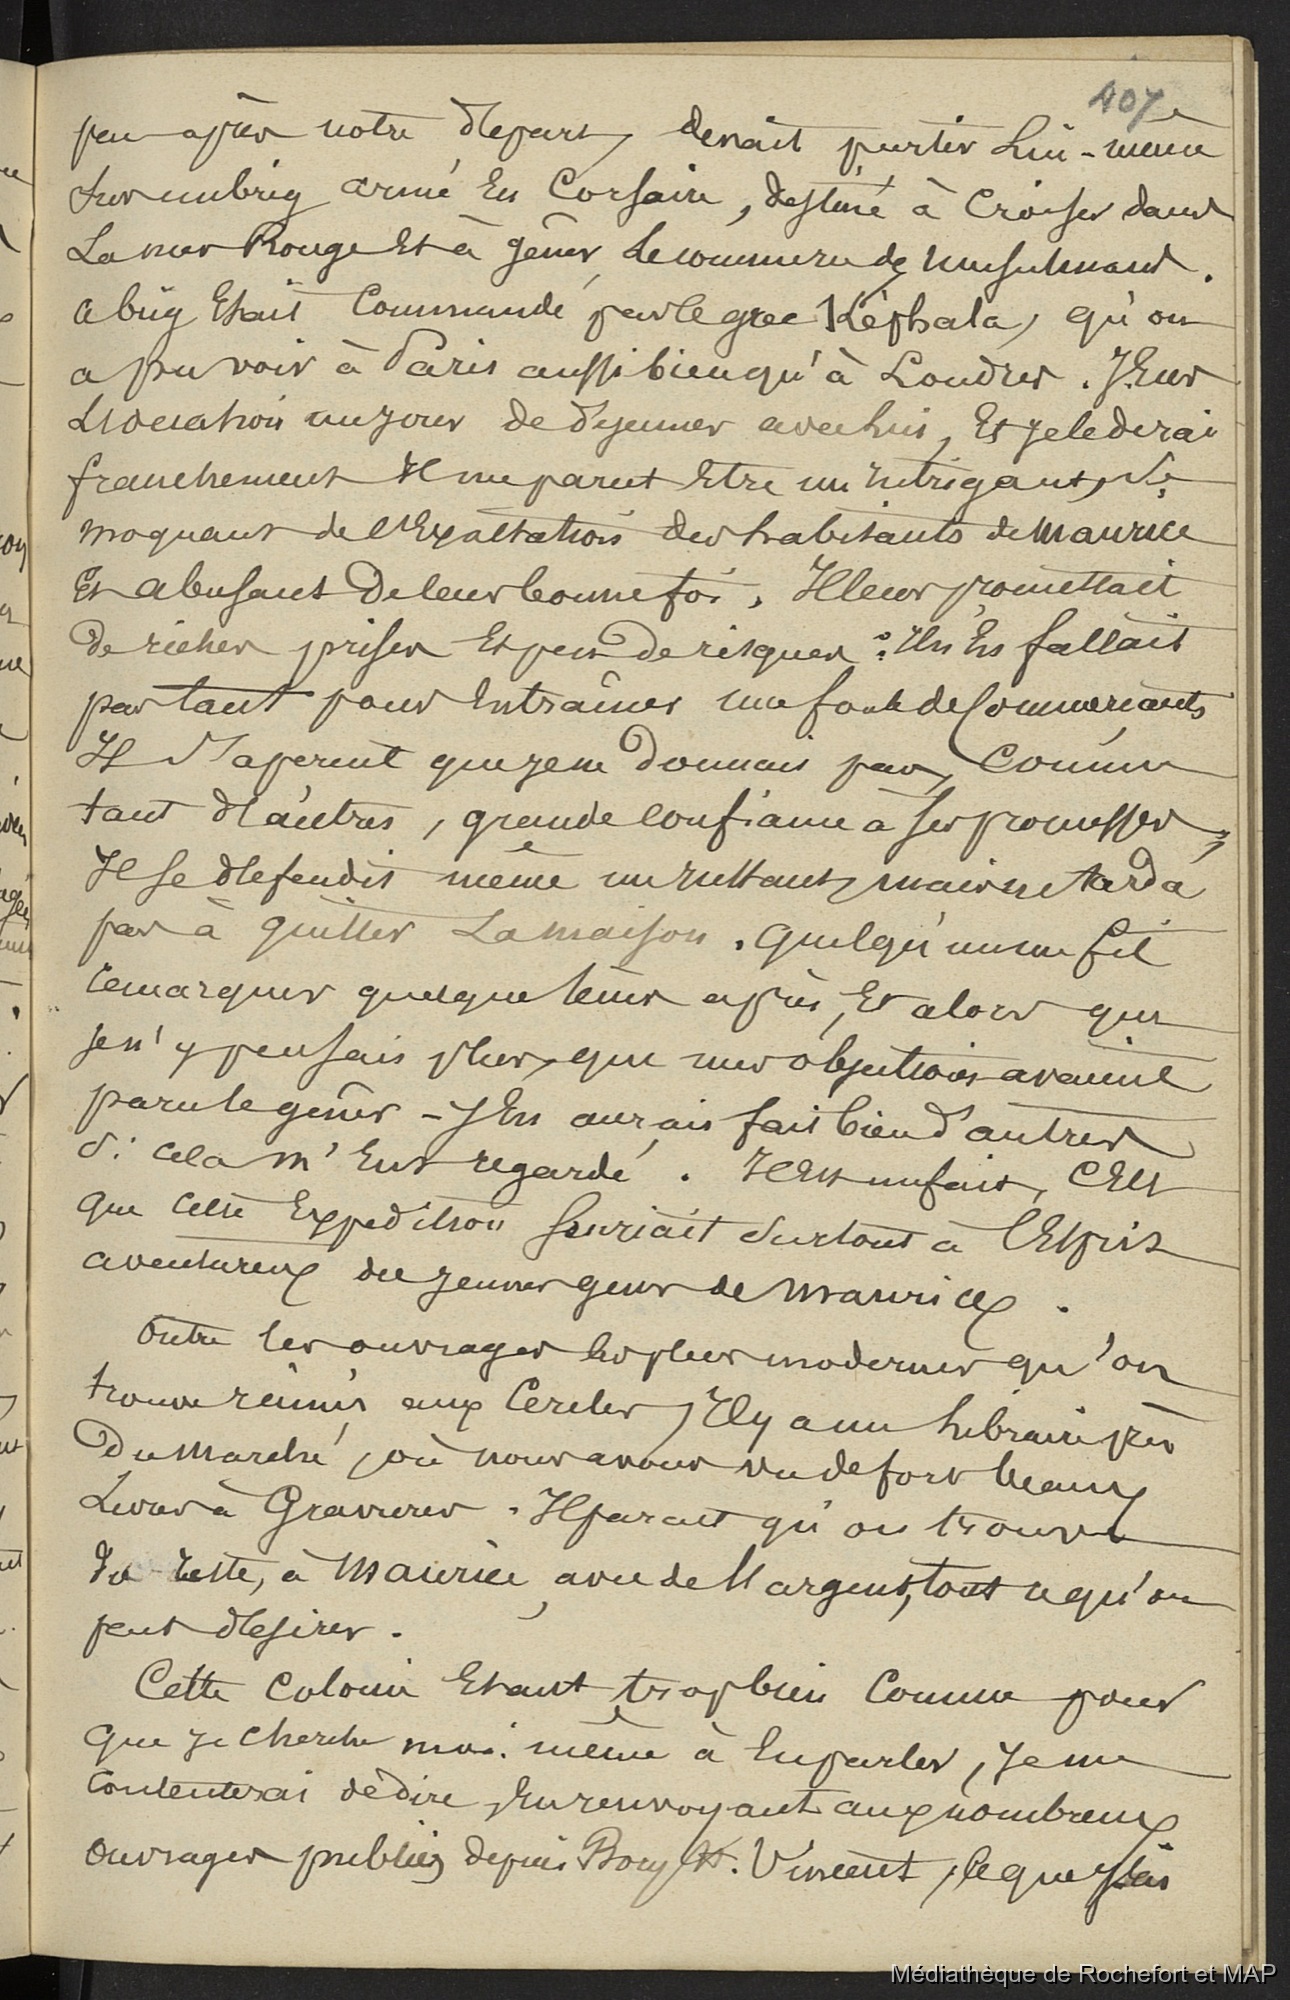 407
peu après notre départ, devait partir lui-même
sur un brig armé en Corsaire, destiné à Croiser dans
La mer Rouge et à gêner le commerce des musulmans.
Ce brig était Commandé par le grec Képhala, qu'on
a pu voir à Paris aussi bien qu'à Londres. J'eus
L'occasion un jour de déjeuner avec lui, et je le dirai
franchement il me parut être un intrigant, se
moquant de l'exaltation des habitants de Maurice
et abusant de leur bonne foi. Il leur promettait
de riches prises et peu de risques : Il n'en fallait
pas tant pour entraîner une foule de Commerçants
Il s'aperçut que je ne donnais pas, Comme
tant d'autres, grande confiance à ses promesses,
Il se défendit même en m'insultant, mais ne tarda
pas à quitter La maison. Quelqu'un me fit
remarquer quelque tems après, et alors que
je n'y pensais plus, que mes objections avaient
paru le gêner – J'en aurais fait bien d'autres
Si cela m'eut regardé. Il est un fait, c'est
que cette Expédition souriait surtout à l'esprit
aventureux des jeunes gens de Maurice.
Outre les ouvrages les plus modernes qu'on
trouve réunis aux Cercles, Il y a un libraire près
Du Marché, où nous avons vu de fort beaux
Livres à Gravures. Il parait qu'on trouve
du reste, à Maurice, avec de l'argent, tout ce qu'on
peut désirer.
Cette Colonie étant trop bien Connue pour
que je cherche moi-même à en parler, je me
contenterai de dire, en renvoyant aux nombreux
ouvrages publiés depuis Bory St. Vincent, ce que j'ai
Médiathèque de Rochefort et MAP